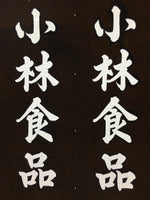 小林食品
小林食品